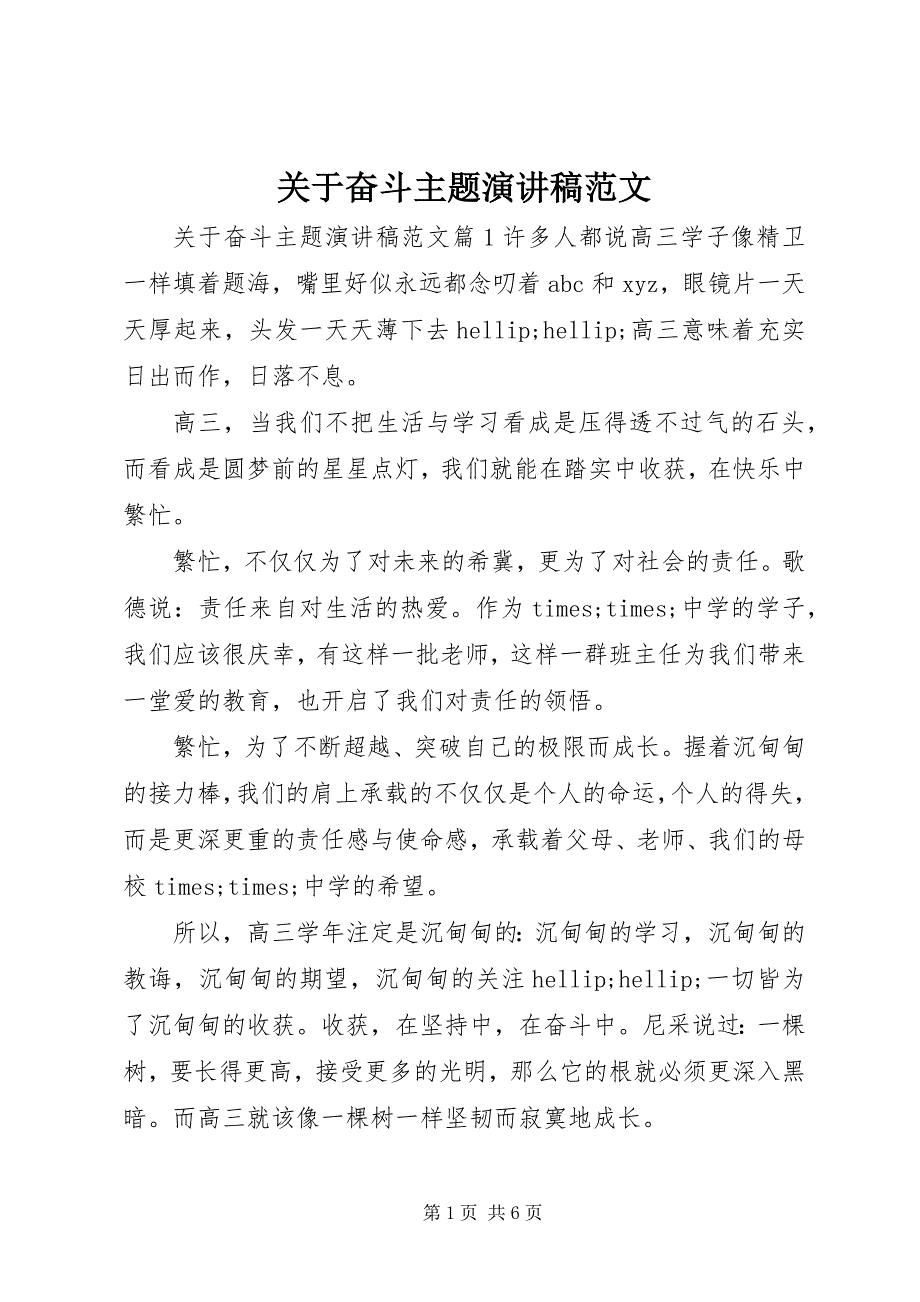 关于奋斗主题演讲稿范文
关于奋斗主题演讲稿范文篇 1 许多人都说高三学子像精卫
一样填着题海，嘴里好似永远都念叨着 abc 和 xyz，眼镜片一天
天厚起来，头发一天天薄下去 hellip;hellip;高三意味着充实
日出而作，日落不息。
高三，当我们不把生活与学习看成是压得透不过气的石头，
而看成是圆梦前的星星点灯，我们就能在踏实中收获，在快乐中
繁忙。
繁忙，不仅仅为了对未来的希冀，更为了对社会的责任。歌
德说：责任来自对生活的热爱。作为 times;times;中学的学子，
我们应该很庆幸，有这样一批老师，这样一群班主任为我们带来
一堂爱的教育，也开启了我们对责任的领悟。
繁忙，为了不断超越、突破自己的极限而成长。握着沉甸甸
的接力棒，我们的肩上承载的不仅仅是个人的命运，个人的得失，
而是更深更重的责任感与使命感，承载着父母、老师、我们的母
校 times;times;中学的希望。
所以，高三学年注定是沉甸甸的：沉甸甸的学习，沉甸甸的
教诲，沉甸甸的期望，沉甸甸的关注 hellip;hellip;一切皆为
了沉甸甸的收获。收获，在坚持中，在奋斗中。尼采说过：一棵
树，要长得更高，接受更多的光明，那么它的根就必须更深入黑
暗。而高三就该像一棵树一样坚韧而寂寞地成长。
第 1 页 共 6 页